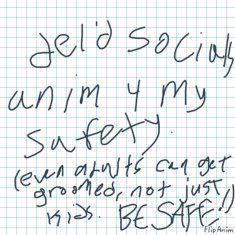 del'd socials
anim 4 my
safety.
(even adults can get
groomed, not just
kids. BE SAFE!)
FlipAnim